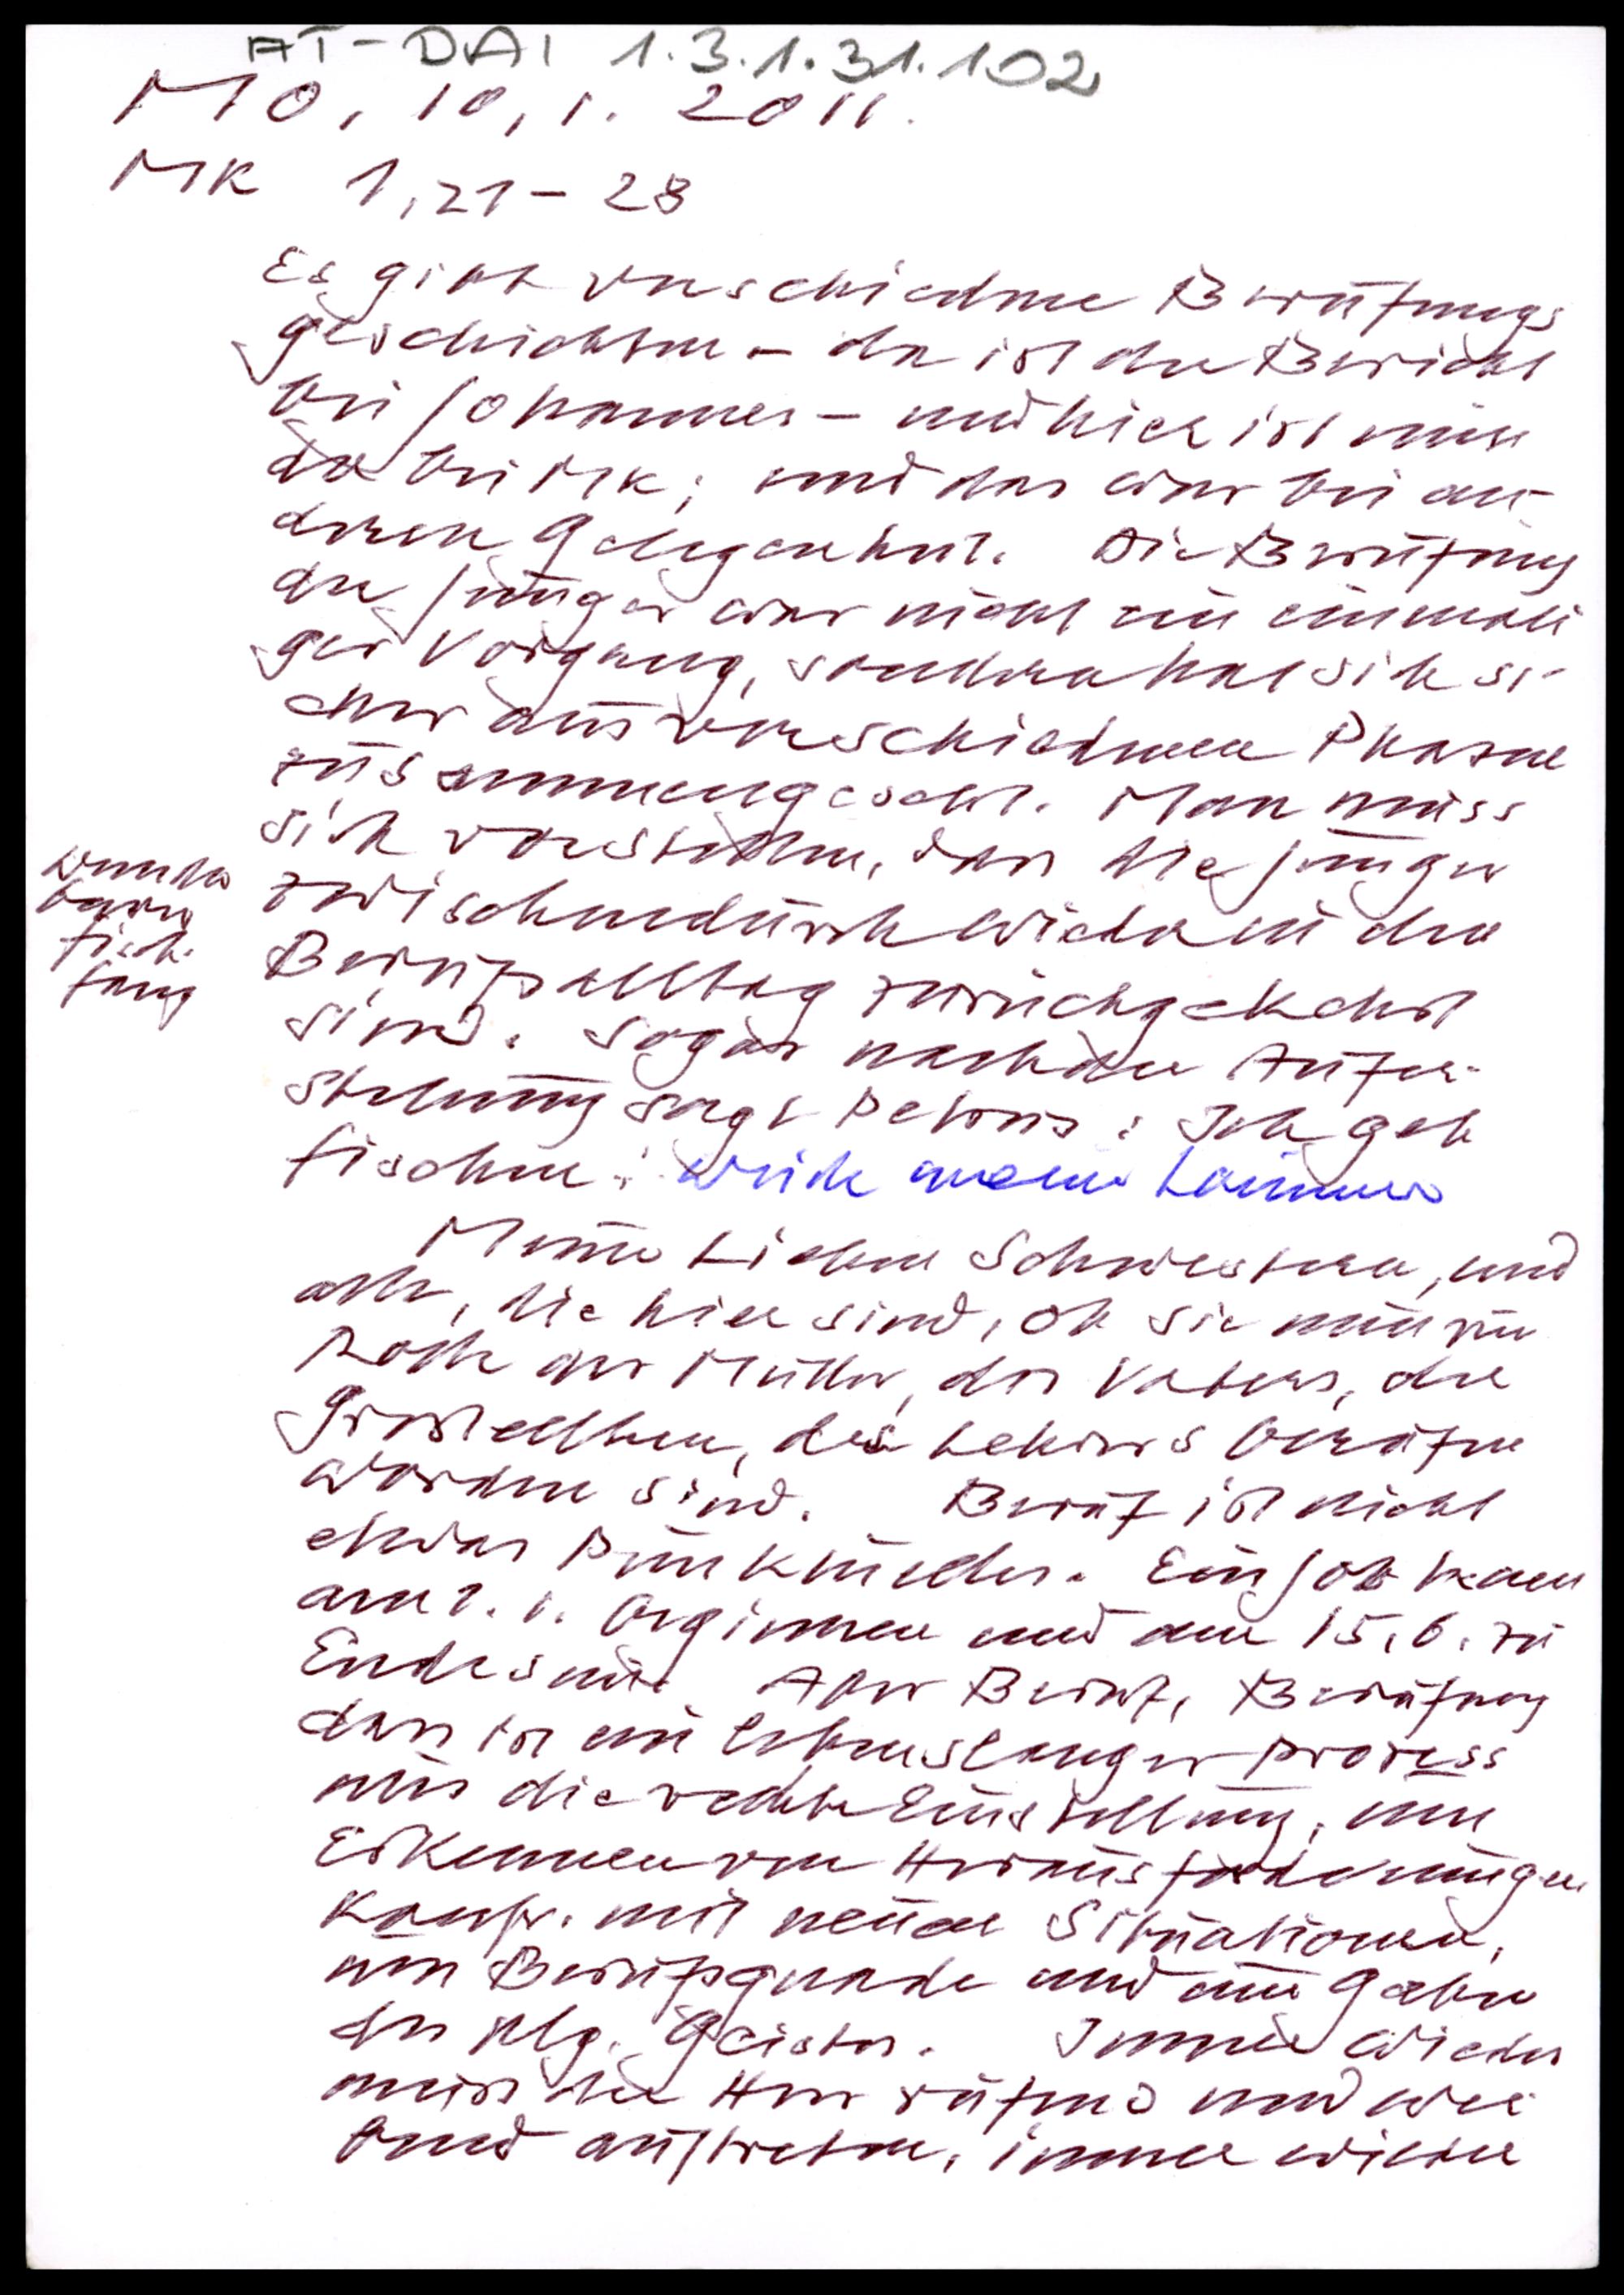 AT-DAI 1.3.1.31.102
Mo, 10.1. 2011.
MK 1,21-28
Es gibt verschiedene Berufungs
geschichten - da ist der Bericht
bei Johannes - und hier ist nun
der bei Mk; und das war bei an-
derer Gelegenheit. Die Berufung
der Jünger war nicht ein einmali
ger Vorgang, sondern hat sich si-
cher aus verschiedenen Phasen
zusammengesetzt. Man muss
sich vorstellen, dass die Jünger
zwischendurch wieder in den
Berufsalltag zurückgekehrt
sind. Sogar nach der Aufer-
stehung sagt Petrus: Ich geh
fischen. Weide meine Lämmer
wunder
barer
Fisch-
fang
Meine Lieben Schwestern, und
alle, die hier sind, ob sie nun zur
Rolle der Mutter, des Vaters, der
Grosseltern, des Lehrers berufen
worden sind. Beruf ist nicht
etwas Punktuelles. Ein Job kann
am 1. 1. beginnen und am 15.6. zu
Ende sein. Aber Beruf, Berufung
das ist ein lebenslanger Prozess
um die rechte Einstellung, um
Erkennen von Herausforderungen
Konfr. mit neuen Situationen,
um Berufsgnade und um Gaben
des Hlg. Geistes. Immer wieder
muss der Herr rufend und wer
bend auftreten, immer wieder